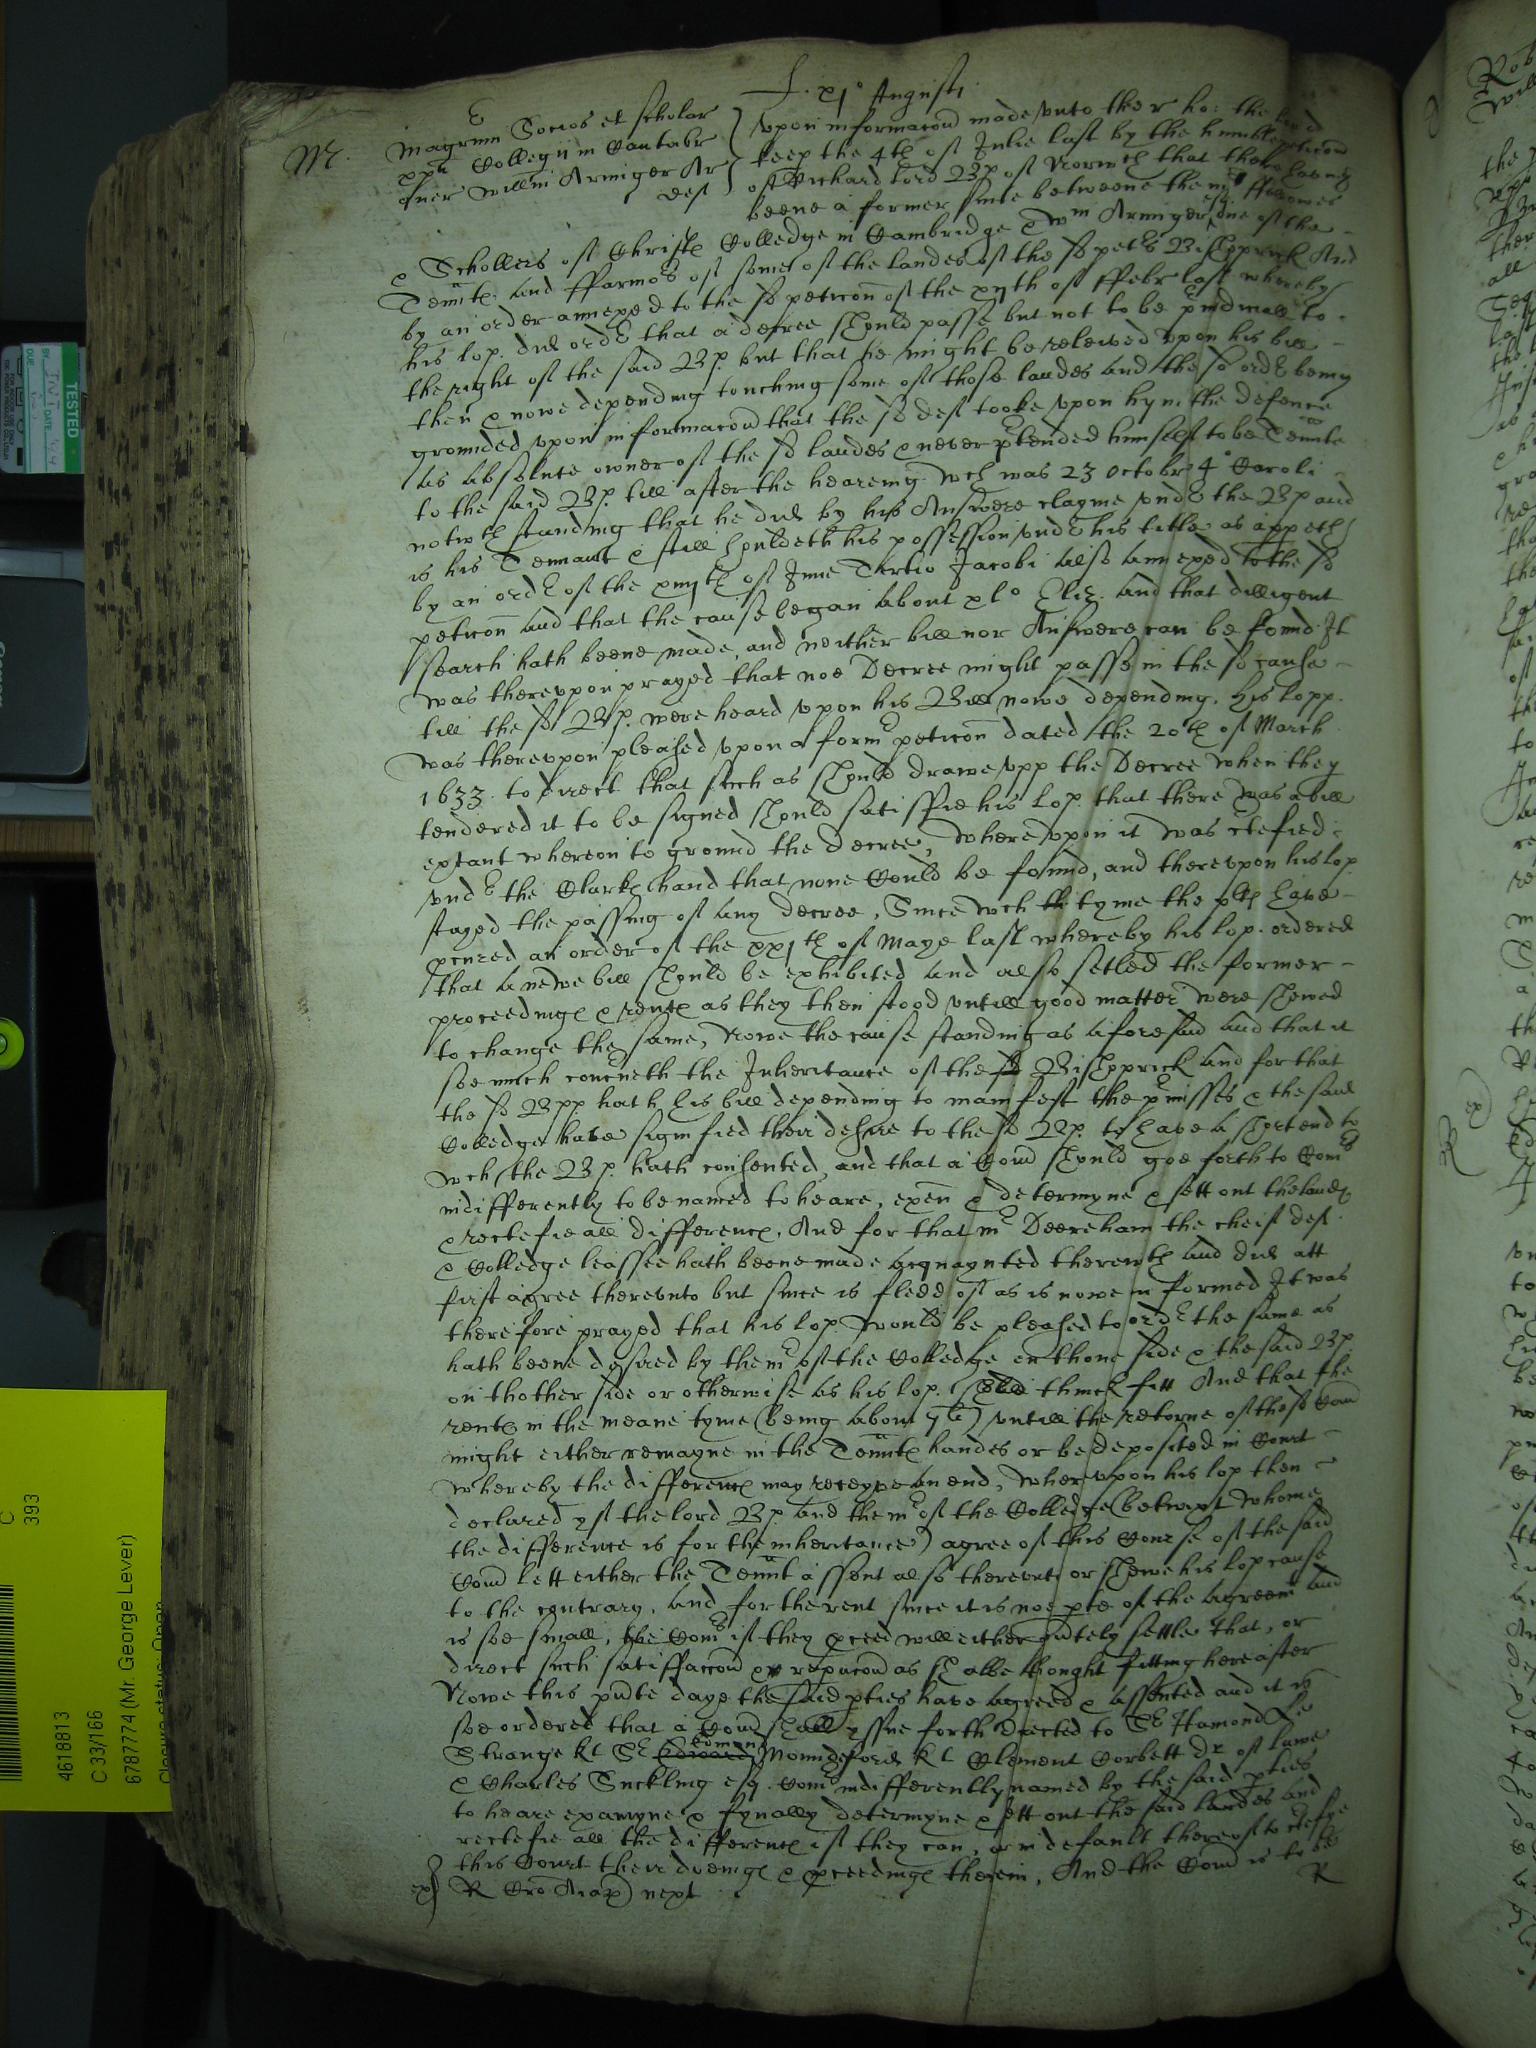 S. xj° Augusti
Mr.
Magrum Socios et scholar
xpi Collegii in Cantabr
quer Willm Armiger Ar
def
Upon informacon made unto the r ho: the lord
keep the 4th of Julie last by the humble peticon
of Richard lord Bp of Norwch that there haveing
beene a former suite betweene the mr ffellowes
& Schollers of Christs Colledge in Cambridge & Wm Armiger esq one of the
Tennts and ffarmors of some of the landes of the sd petrs Bishopprick And
by an order annexed to the sd peticon of the xijth of ffebr last whereby
his lop. did order that a decree should passe but not to be priudiciall to
the right of the said Bp. but that he might be releived upon his bill
then & nowe depending touching some of those landes and the sd order being
grounded upon informacon that the sd deft tooke upon hym the defence
as absolute owner of the sd landes & never ptended himself to be Tennte
to the said Bp. till after the hearing wch was 23 Octobr 4° Caroli
notwthstanding that he did by his Answere clayme under the Bp and
is his Tennant & still houldeth his possession under his title as appeth
by an order of the xiijth of June Tertio Jacobi also annexed to the sd
peticon and that the cause began about xl° Eliz. and that dilligent
search hath beene made, and neither bill nor Answere can be found It
was thereupon prayed that noe Decree might passe in the sd cause
till the sd Bp. were heard upon his Bill nowe depending. his lopp.
was thereupon pleased upon a formr peticon dated the 20th of March
1633. to direct that such as should drawe upp the Decree when they
tendered it to be signed should satisfie his lop that there was a bill
extant whereon to ground the decree, whereupon it was ctefied
under the Clarks hand that none could be found, and thereupon his lop
stayed the passing of any decree, Since wch tyme the plts have
pcured an order of the xxjth of Maye last whereby his lop. ordered
that a newe bill should be exhibited and also setled the former
proceedings & rents as they then stood untill good matter were shewed
to change the same, Nowe the cause standing as aforesaid and that it
soe much concneth the Inheritance of the sd Bishopprick and for that
the sd Bpp hath his bill depending to manifest the pmisses & the said
Colledge have signified their desire to the sd Bp. to have a short end to
wch the Bp. hath consented, and that a Comn should goe forth to Comrs
indifferently to be named to heare, exen & determyne & sett out the lands
& rectefie all differencs, And for that mr Deereham the cheif deft
& Colledge leassee hath beene made acquaynted therewth and did att
first agree thereunto but since is fledd of as is nowe informed It was
therefore prayed that his lop. would be pleased to order the same as
hath beene desired by the mr of the Colledge on thone side & the said Bp.
on thother side or otherwise as his lop. should thinck fitt And that the
rents in the meane tyme (being about untill the retorne of those Comn
might either remayne in the Tennts handes or be deposited in Court
whereby the differencs may receyve an end, whereupon his lop then
declared yf the lord Bp. and the mr of the Colledge (betwixt whome
the difference is for the inheritance) agree of this Course of the said
Comn lett either the Tennt assent also thereunto or shewe his lop cause
to the contrary, and for the rent since it is noe pte of the agreemt and
is soe small, the Comrs if they pceed will either settle that, or
direct such satisfaccon or repacon as shalbe thought fitting hereafter
Nowe this pnte daye the said pties have agreed & assented and it is
soe ordered that a Comn shall yssue forth directed to Sr Hamond Le
Strange kt Sr Edward Edmond Moundeford kt Clement Corbett Dr of lawe
& Charles Suckling esq. Comrs indifferently named by the said pties
to heare examyne & fynally determyne & sett out the said landes and
rectefie all the differencs if they can, or in default thereof to ctefye
this Court their doeings & pceedings therein, And the Comn is to be
ex R Cro Aiaru next
R
TESTED
DATE
DUE
C
393
4618813
C 33/166
6787774 (Mr. George Lever)
Closure status: Open